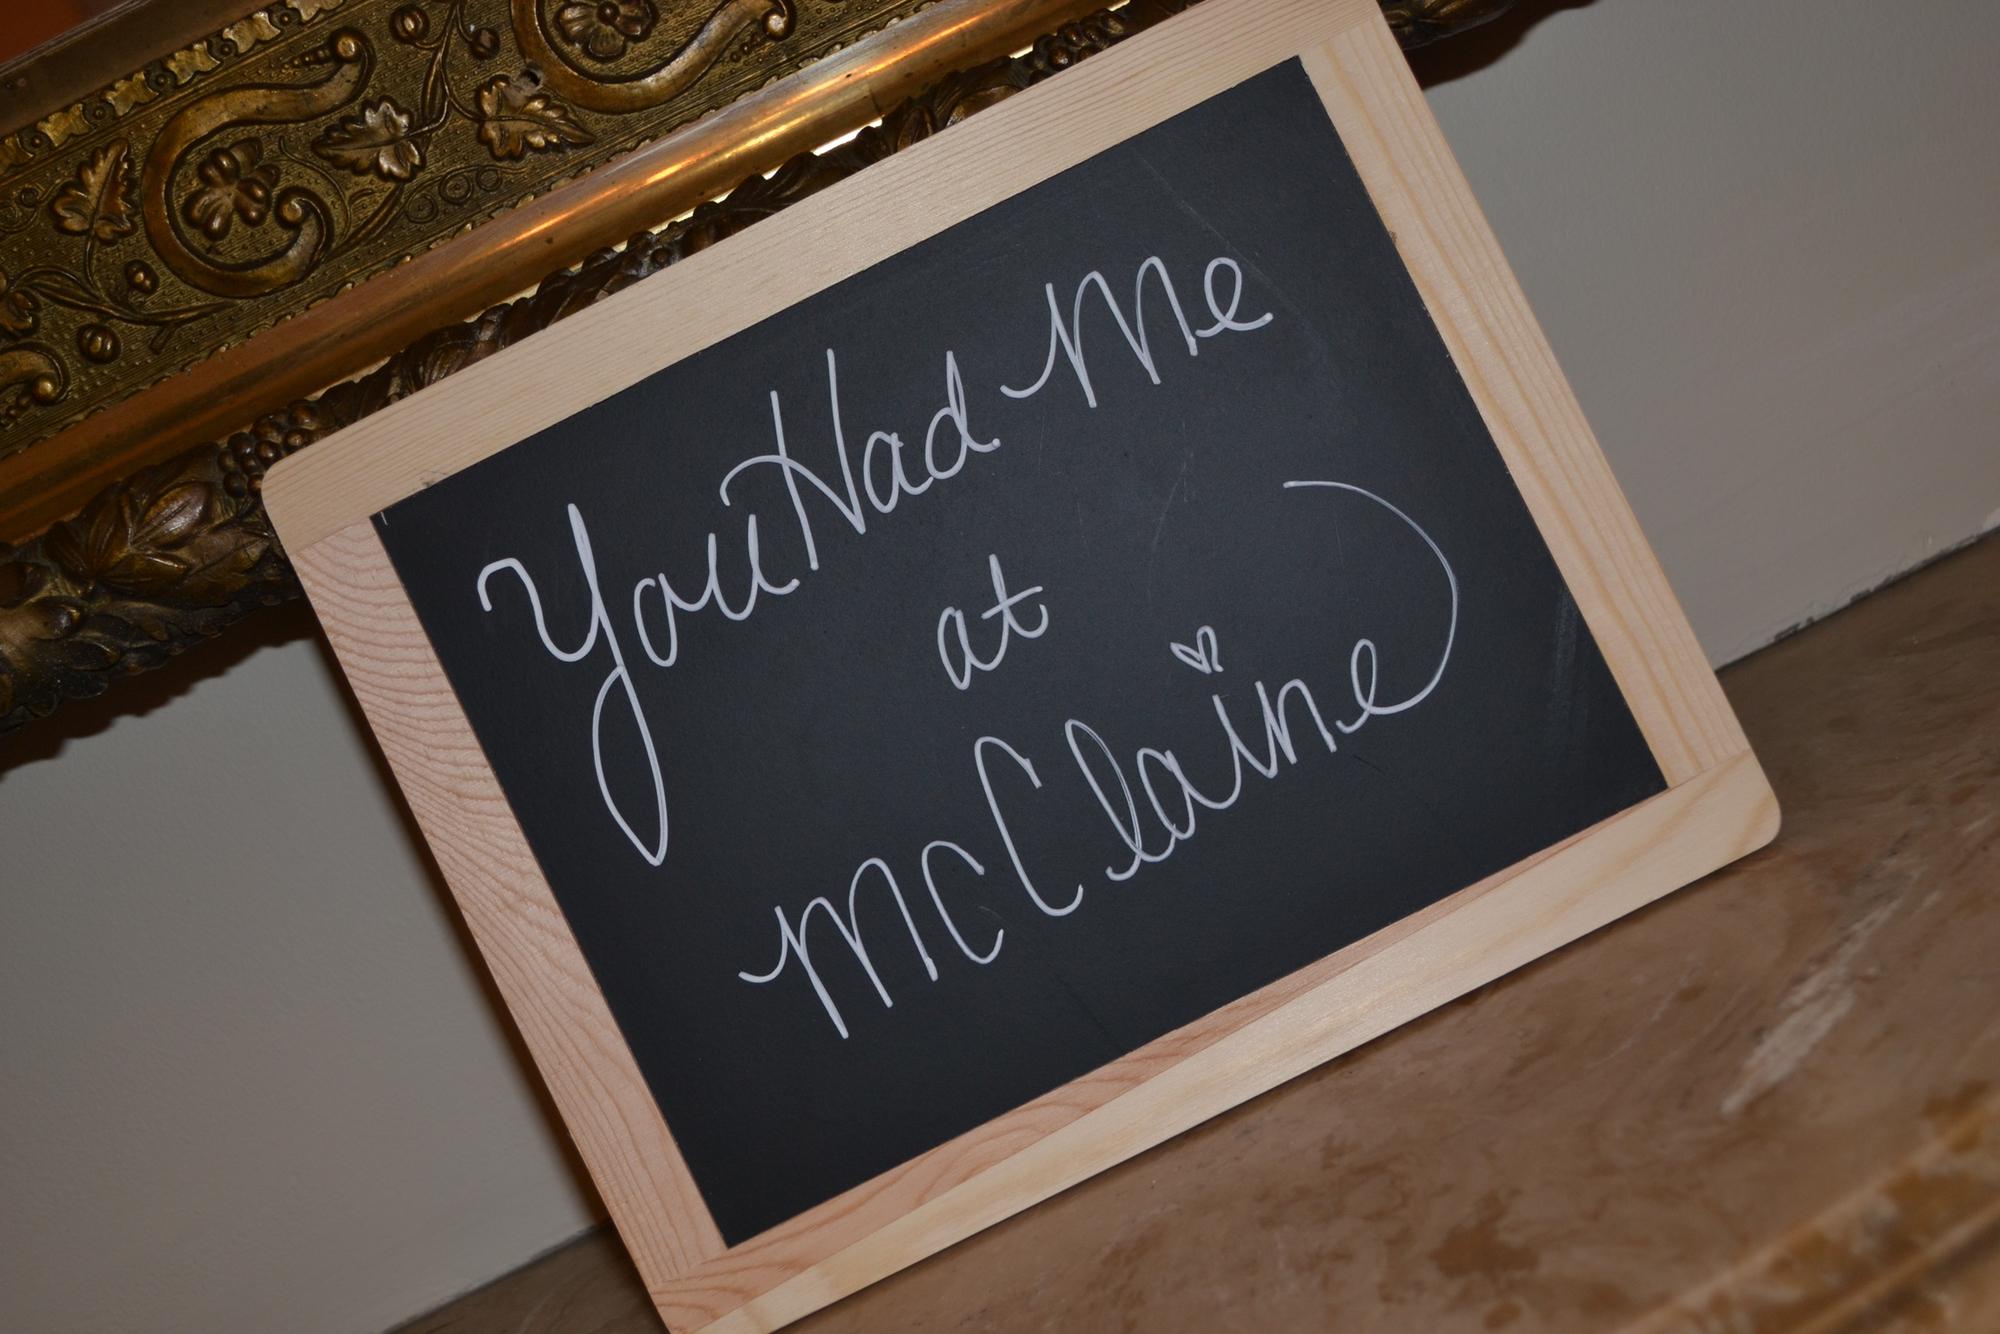 You Had Me
at
McClaine